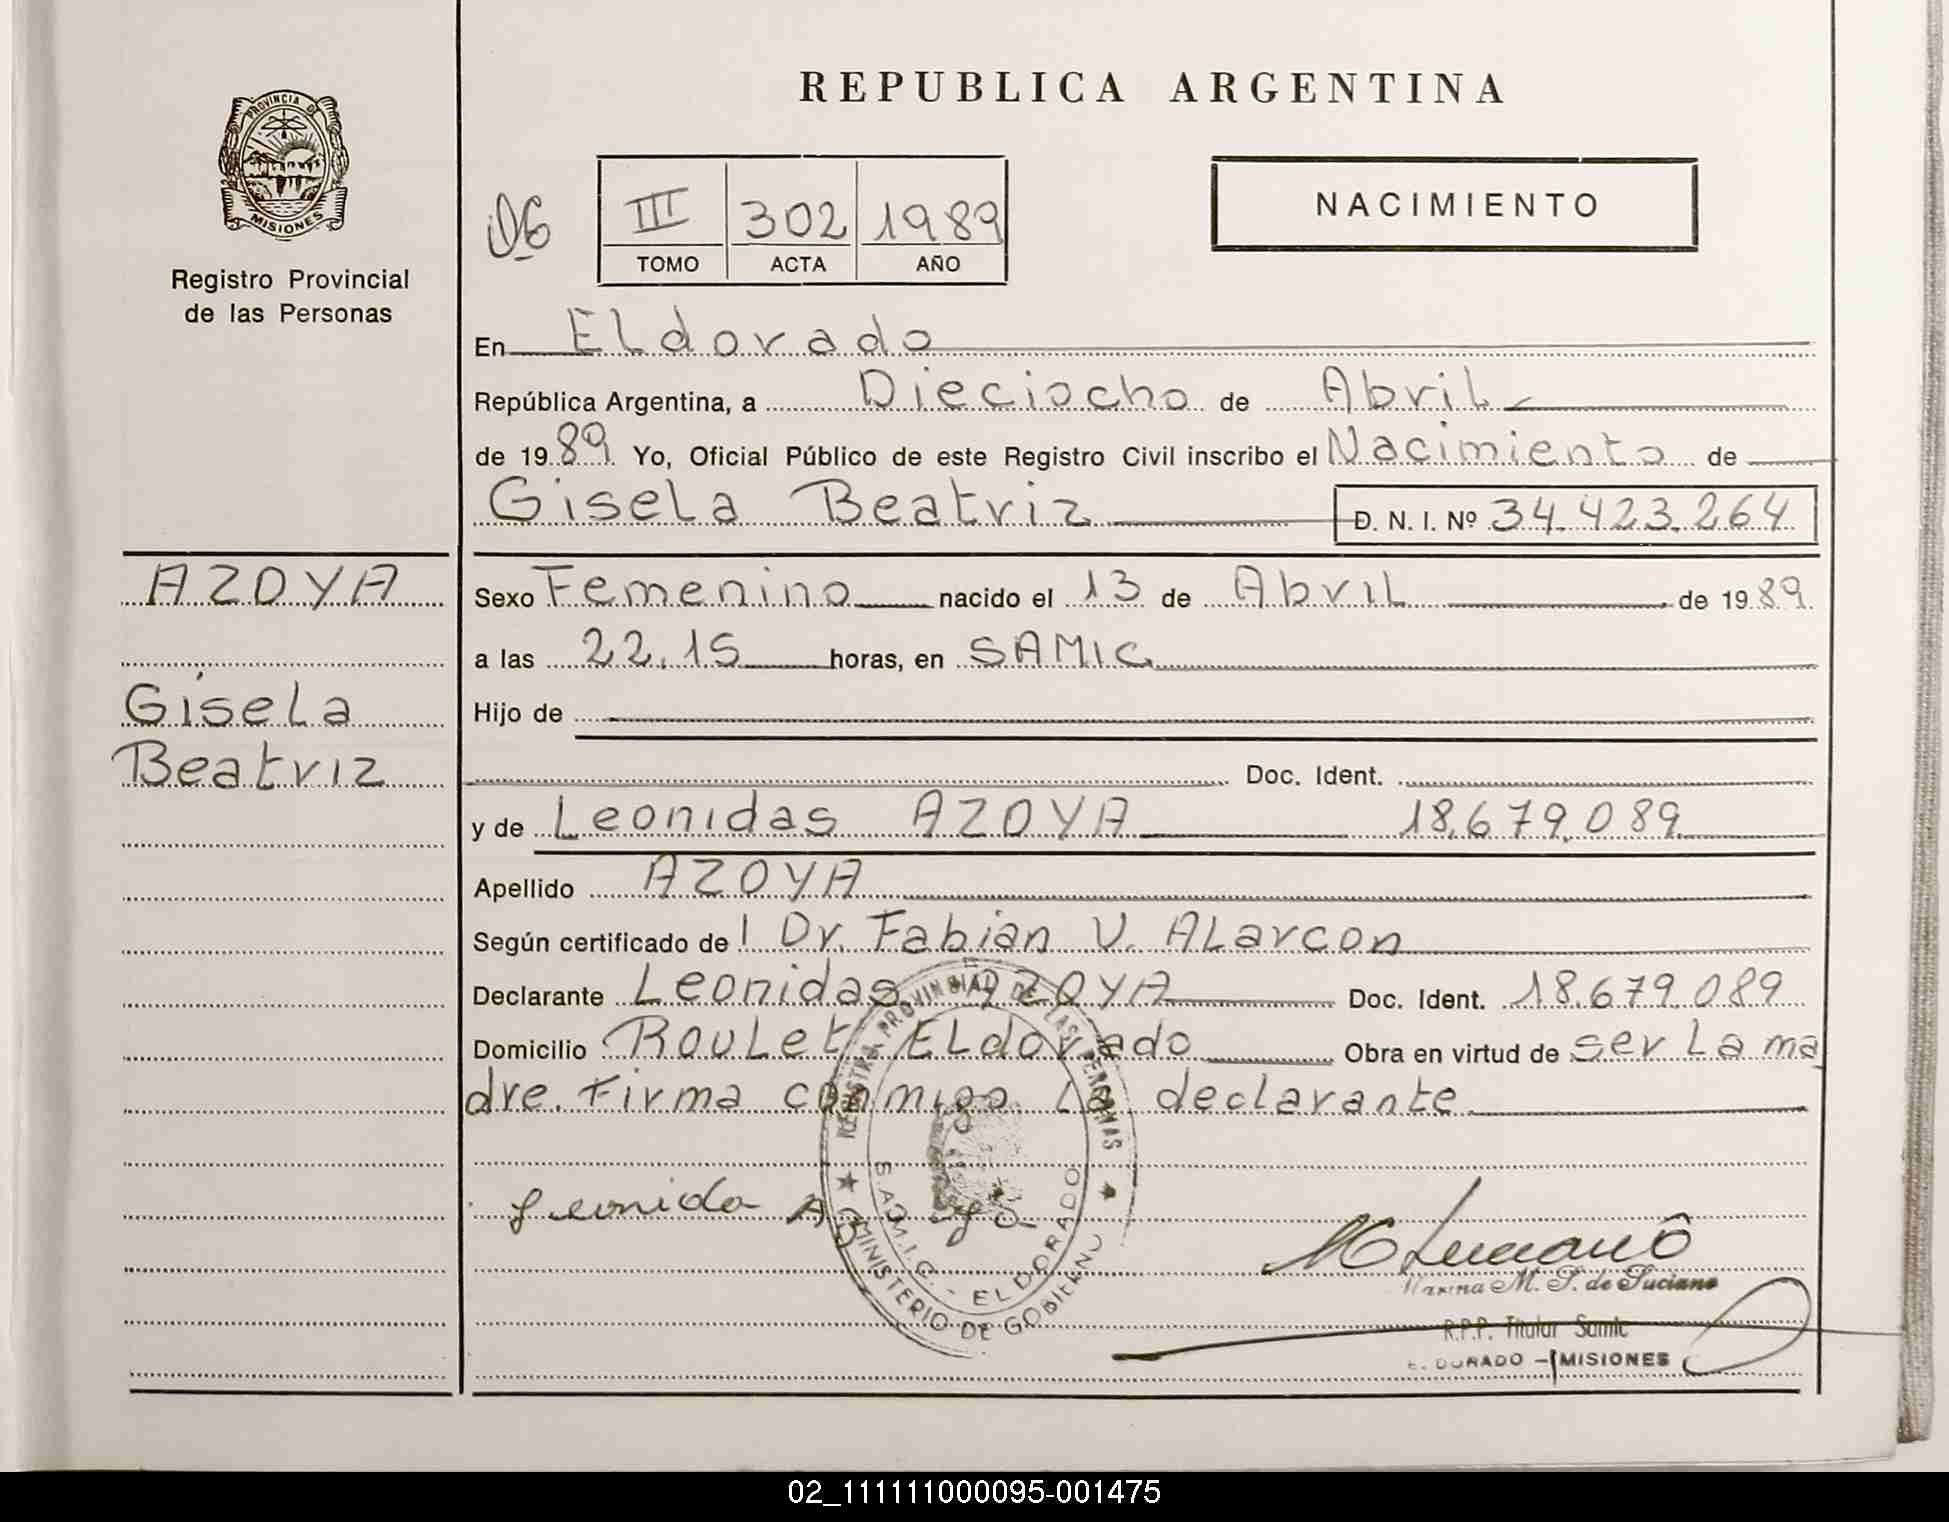 REPUBLICA ARGENTINA
PROVINCIA DE
MISIONES
Registro Provincial
de las Personas
06
III 302 1989
TOMO ACTA AÑO
NACIMIENTO
En Eldorado
República Argentina, a Dieciocho de Abril
de 1989 Yo, Oficial Público de este Registro Civil inscribo el Nacimiento de
Gisela Beatriz D. N. I. Nº 34.423.264
AZOYA
Gisela
Beatriz
Sexo Femenino nacido el 13 de Abril de 1989
a las 22.15 horas, en SAMIC
Hijo de
Doc. Ident.
y de Leonidas AZOYA 18.679.089
Apellido AZOYA
Según certificado de l Dr. Fabian V. ALarcon
Declarante Leonidas AZOYA Doc. Ident. 18.679.089
Domicilio Roulet ELdorado Obra en virtud de ser la ma
dre. Firma conmigo la declarante
Leonida
PROVINCIAL DE LAS PERSONAS
S.A.M.I.C. - ELDORADO
MINISTERIO DE GOBIERNO
Marina M. S. de Luciano
R.P.P. Titular Samic
ELDORADO - MISIONES
02_111111000095-001475